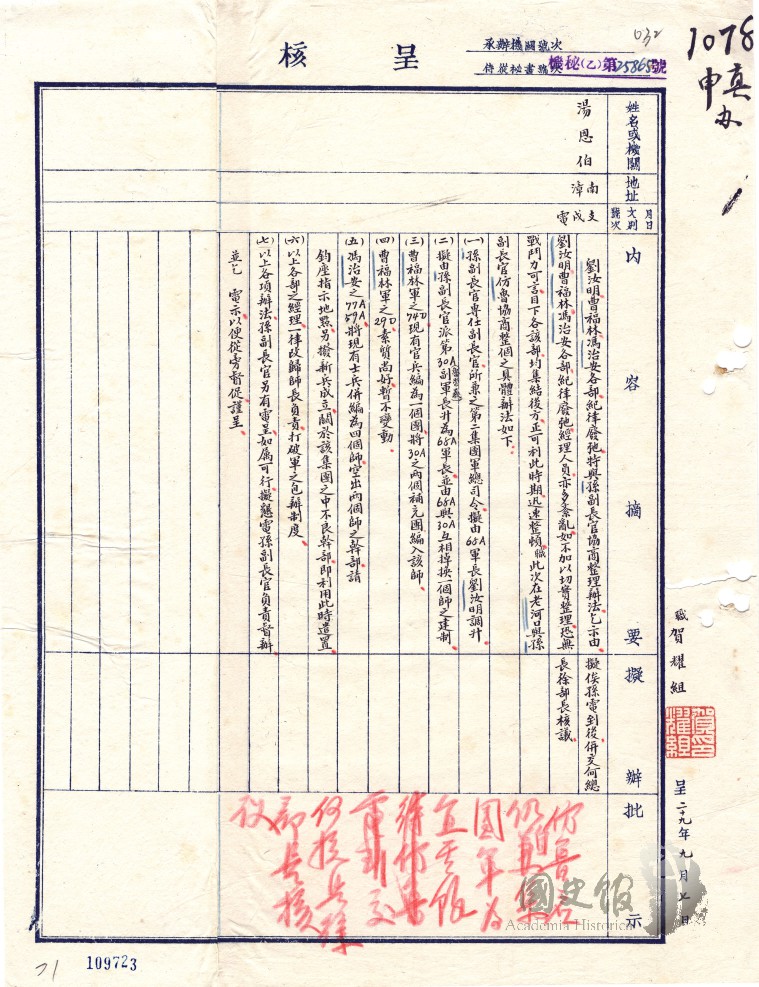 呈核
承辦機關號次
侍從秘書號次
機秘(乙)第25865號
032
1078
申真
办
姓名或機關
湯恩伯
地址
南漳
月日文別號次
支戌電
內容摘要
劉汝明曹福林馮治安各部紀律廢弛特與孫副長官協商整理辦法乞示由
劉汝明曹福林馮治安各部紀律廢弛經理人員亦多紊亂如不加以切實整理恐無
戰鬥力可言目下各該部均集結後方正可利此時期迅速整頓職此次在老河口與孫
副長官仿魯協商整個之具體辦法如下
(一)孫副長官專任副長官所兼之第二集團軍總司令擬由68A軍長劉汝明調升
(二)擬由孫副長官派第30A副軍長升為68A軍長並由68A與30A互相掉換一個師之建制
(三)曹福林軍之74D現有官兵編為一個團將30A之兩個補充團編入該師
(四)曹福林軍之29D素質尚好暫不變動
(五)馮治安之77A59A將現有士兵併編為四個師空出兩個師之幹部請
鈞座指示地點另撥新兵成立關於該集團之中不良幹部即利用此時遣置
(六)以上各部之經理一律改歸師長負責打破軍之包辦制度
(七)以上各項辦法孫副長官另有電呈如屬可行擬懇電孫副長官負責督辦
並乞 電示以便從旁督促謹呈
擬辦
擬俟孫電到後併交何總
長徐部長核議
批示
仿魯應
仍兼集
團軍為
宜可
何總長徐
部長核
議
職賀耀組
賀耀組印
呈二十九年九月七日
國史館
Academia Historica
109723
71